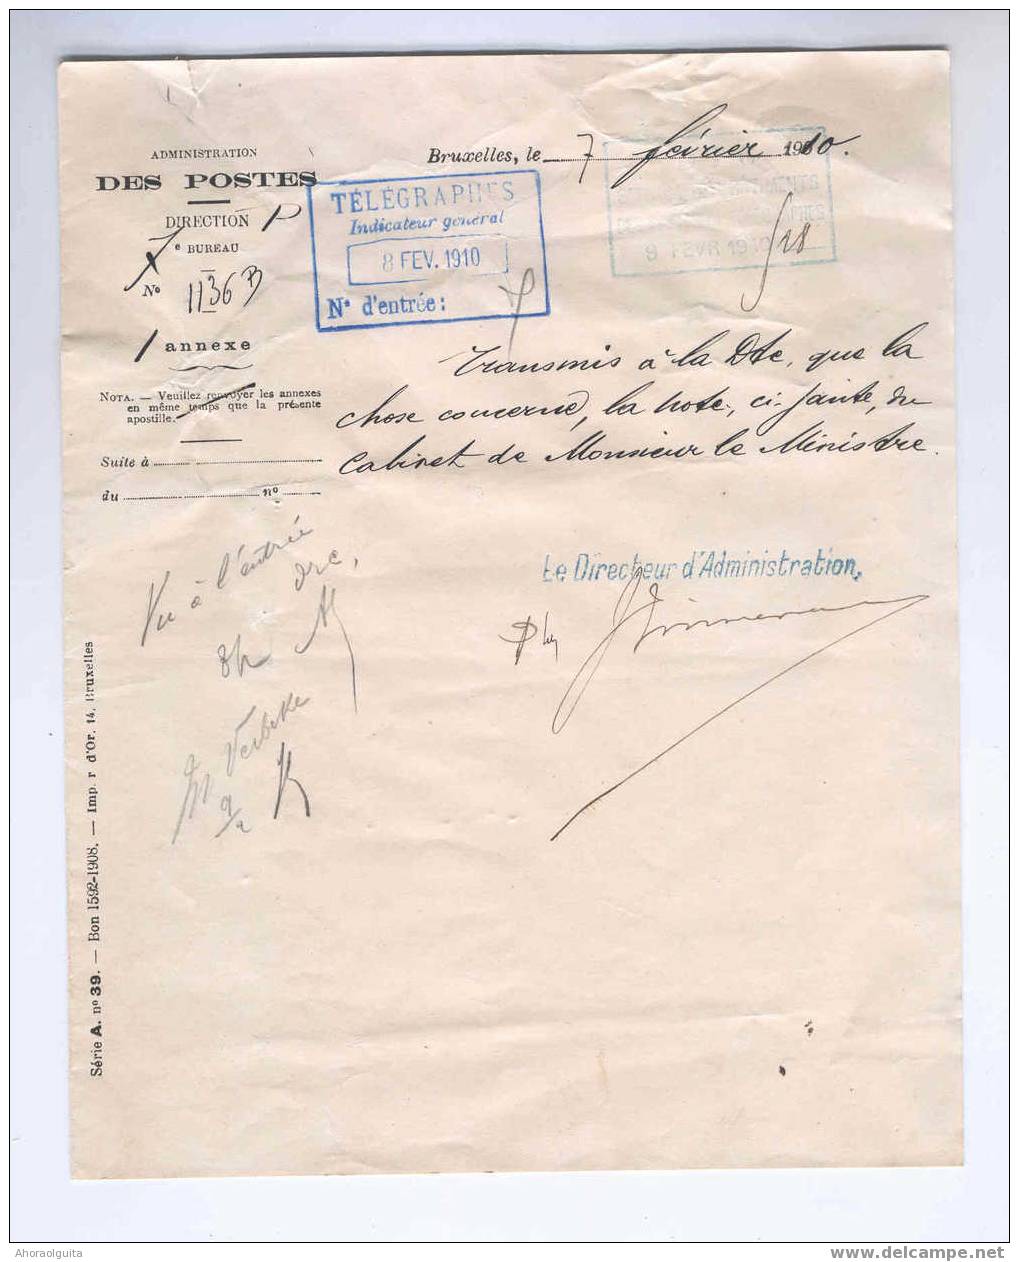 ADMINISTRATION
DES POSTES
DIRECTION P
7e BUREAU
No 1136 B
1 annexe
NOTA. — Veuillez renvoyer les annexes
en même temps que la présente
apostille.
Suite à
du no
Bruxelles, le 7 février 1910.
TÉLÉGRAPHES
Indicateur général
8 FEV. 1910
No d'entrée:
9 FEVR 1910
Transmis à la Dte, que la
chose concerne, la note, ci-jointe, du
Cabinet de Monsieur le Ministre.
Le Directeur d'Administration,
Vu à l'entrée
M Verbeke
9/2
Série A. no 39. — Bon 1592-1908. — Imp. r d'Or, 14, Bruxelles
Ahoraolguita
www.delcampe.net